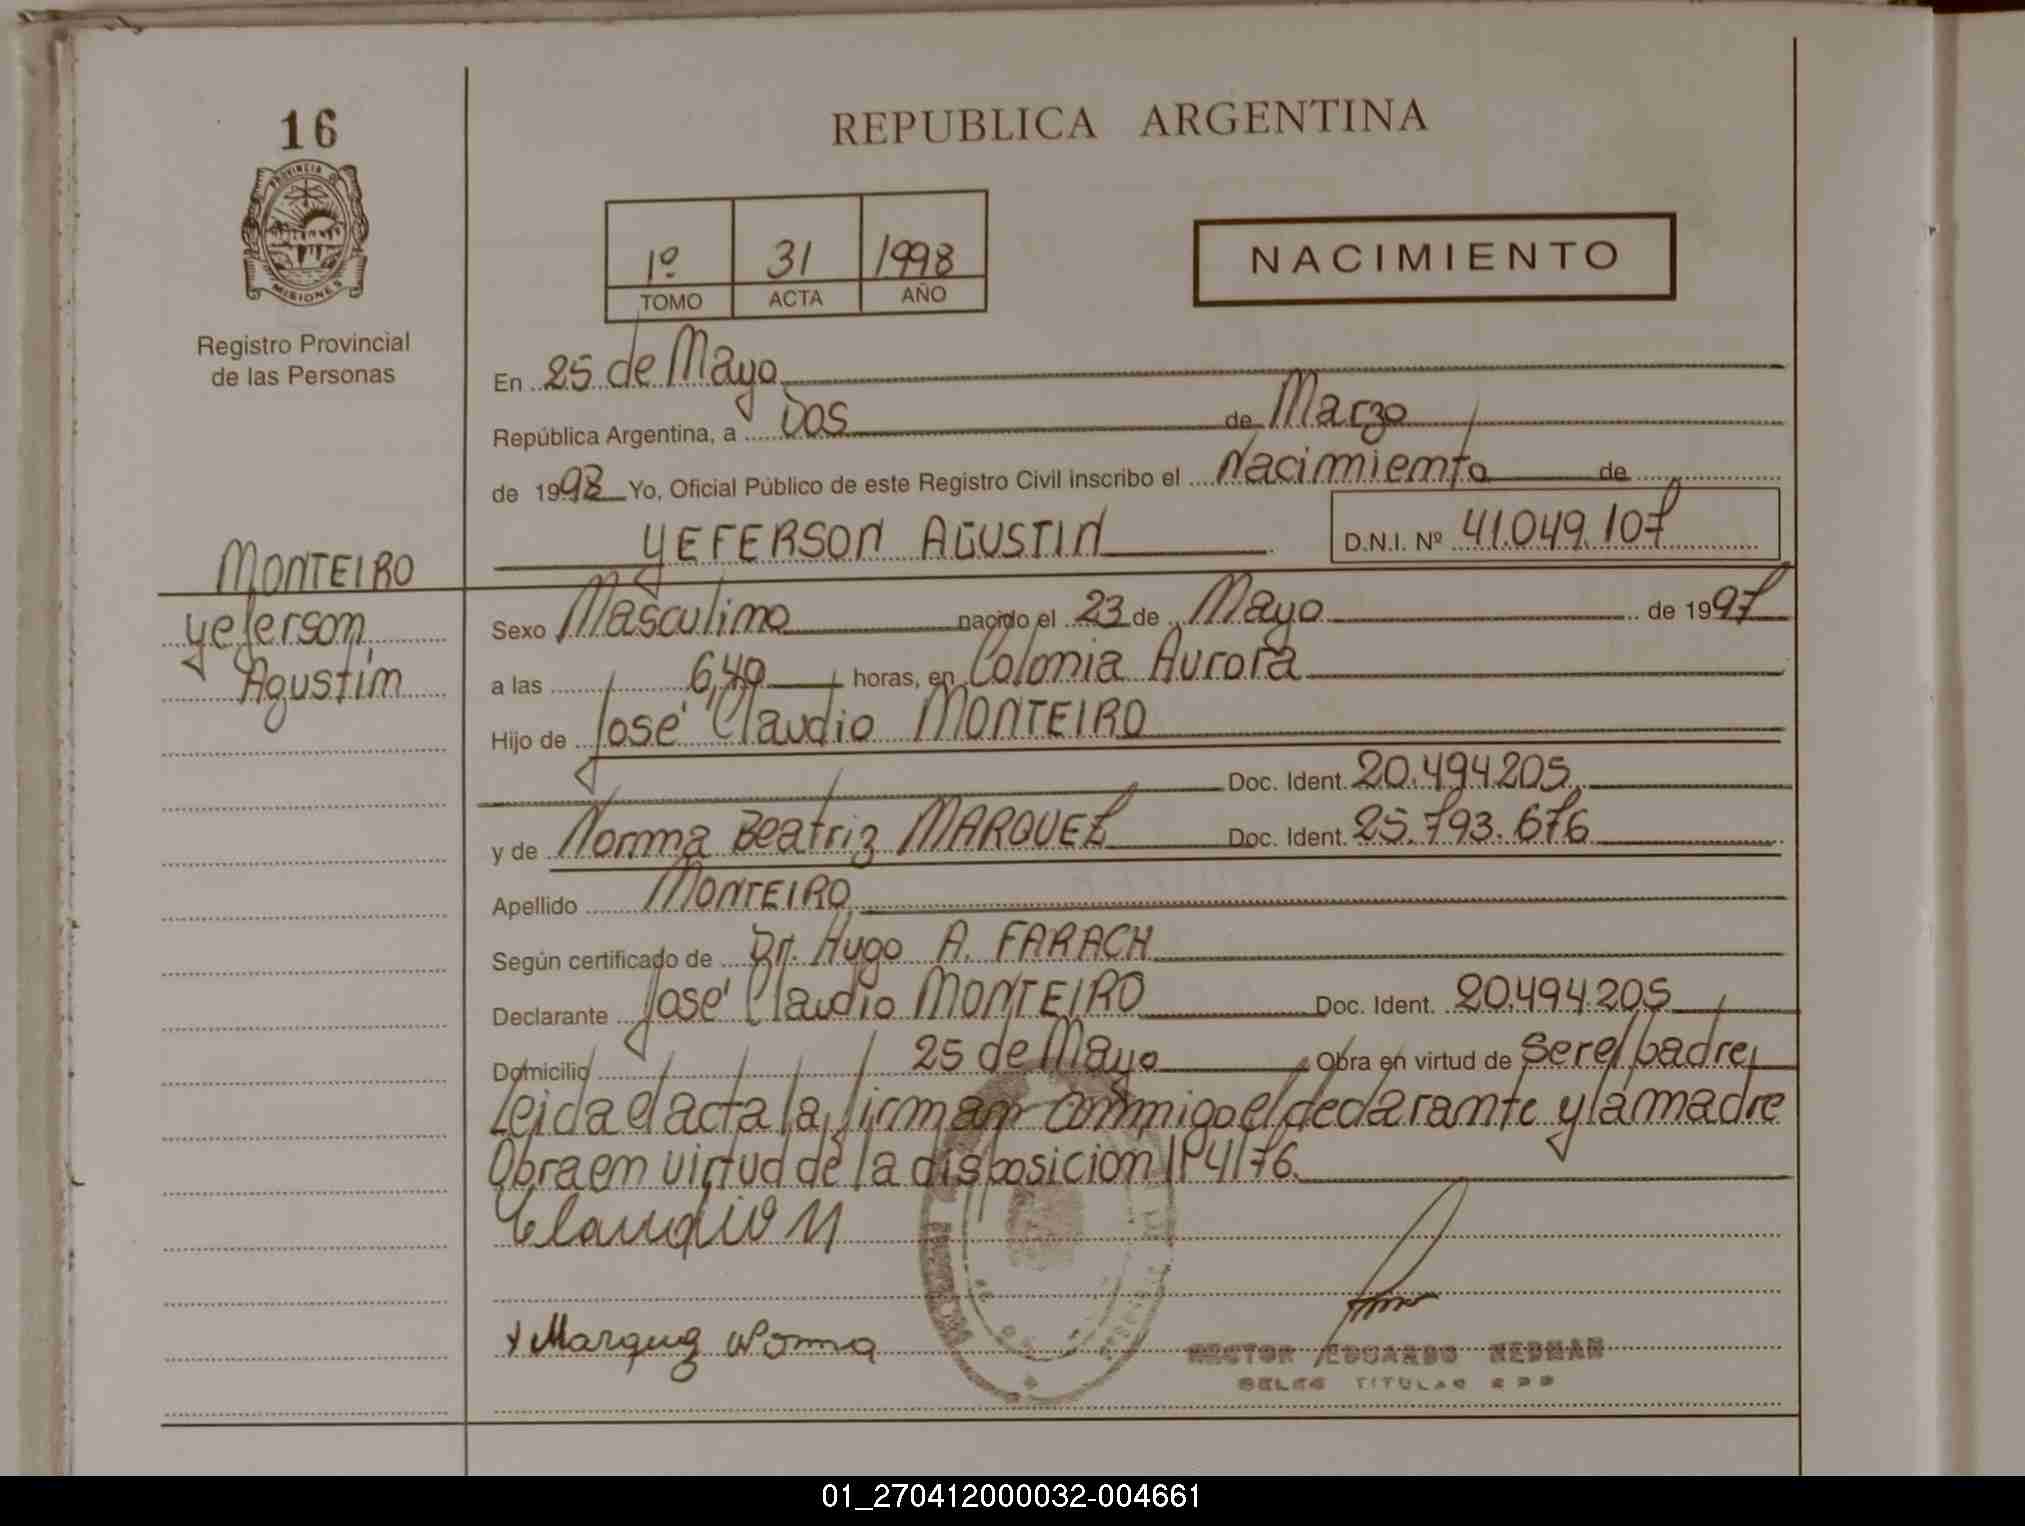 16
PROVINCIA DE
MISIONES
Registro Provincial
de las Personas
REPUBLICA ARGENTINA
1º 31 1998
TOMO ACTA AÑO
NACIMIENTO
En 25 de Mayo
República Argentina, a Dos de Marzo
de 1998 Yo, Oficial Público de este Registro Civil inscribo el Nacimiento de
YEFERSON AGUSTIN D.N.I. Nº 41.049.107
MONTEIRO
Yeferson
Agustin
Sexo Masculino nacido el 23 de Mayo de 1997
a las 6,40 horas, en Colonia Aurora
Hijo de José Claudio MONTEIRO
Doc. Ident. 20.494.205
y de Norma Beatriz MARQUEZ Doc. Ident. 25.793.676
Apellido MONTEIRO
Según certificado de Dr. Hugo A. FARACH
Declarante José Claudio MONTEIRO Doc. Ident. 20.494.205
Domicilio 25 de Mayo Obra en virtud de ser el padre
Leida el acta la firman conmigo el declarante y la madre
Obra en virtud de la disposicion Nº 4/76
Claudio M
x Marquez Norma
HECTOR EDUARDO NEDMAN
TITULAR
01_270412000032-004661